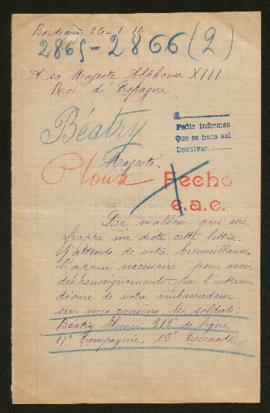 Bordeaux 26-1-16
2865-2866 (2)
A sa Majesté Alphonse XIII
Roi d'Espagne.
Béatry
Pedir informes
Que se haga así
Devolver
Majesté.
Ploux
Fecho
e.a.e.
Le malheur qui me
frappe me dicte cette lettre.
J'attends de votre bienveillance
l'appui nécessaire pour avoir
des renseignements par l'interm
édiaire de votre ambassadeur
sur mes cousins les soldats:
Béatry Henri 212e de ligne
17e Compagnie, 15e Escouade